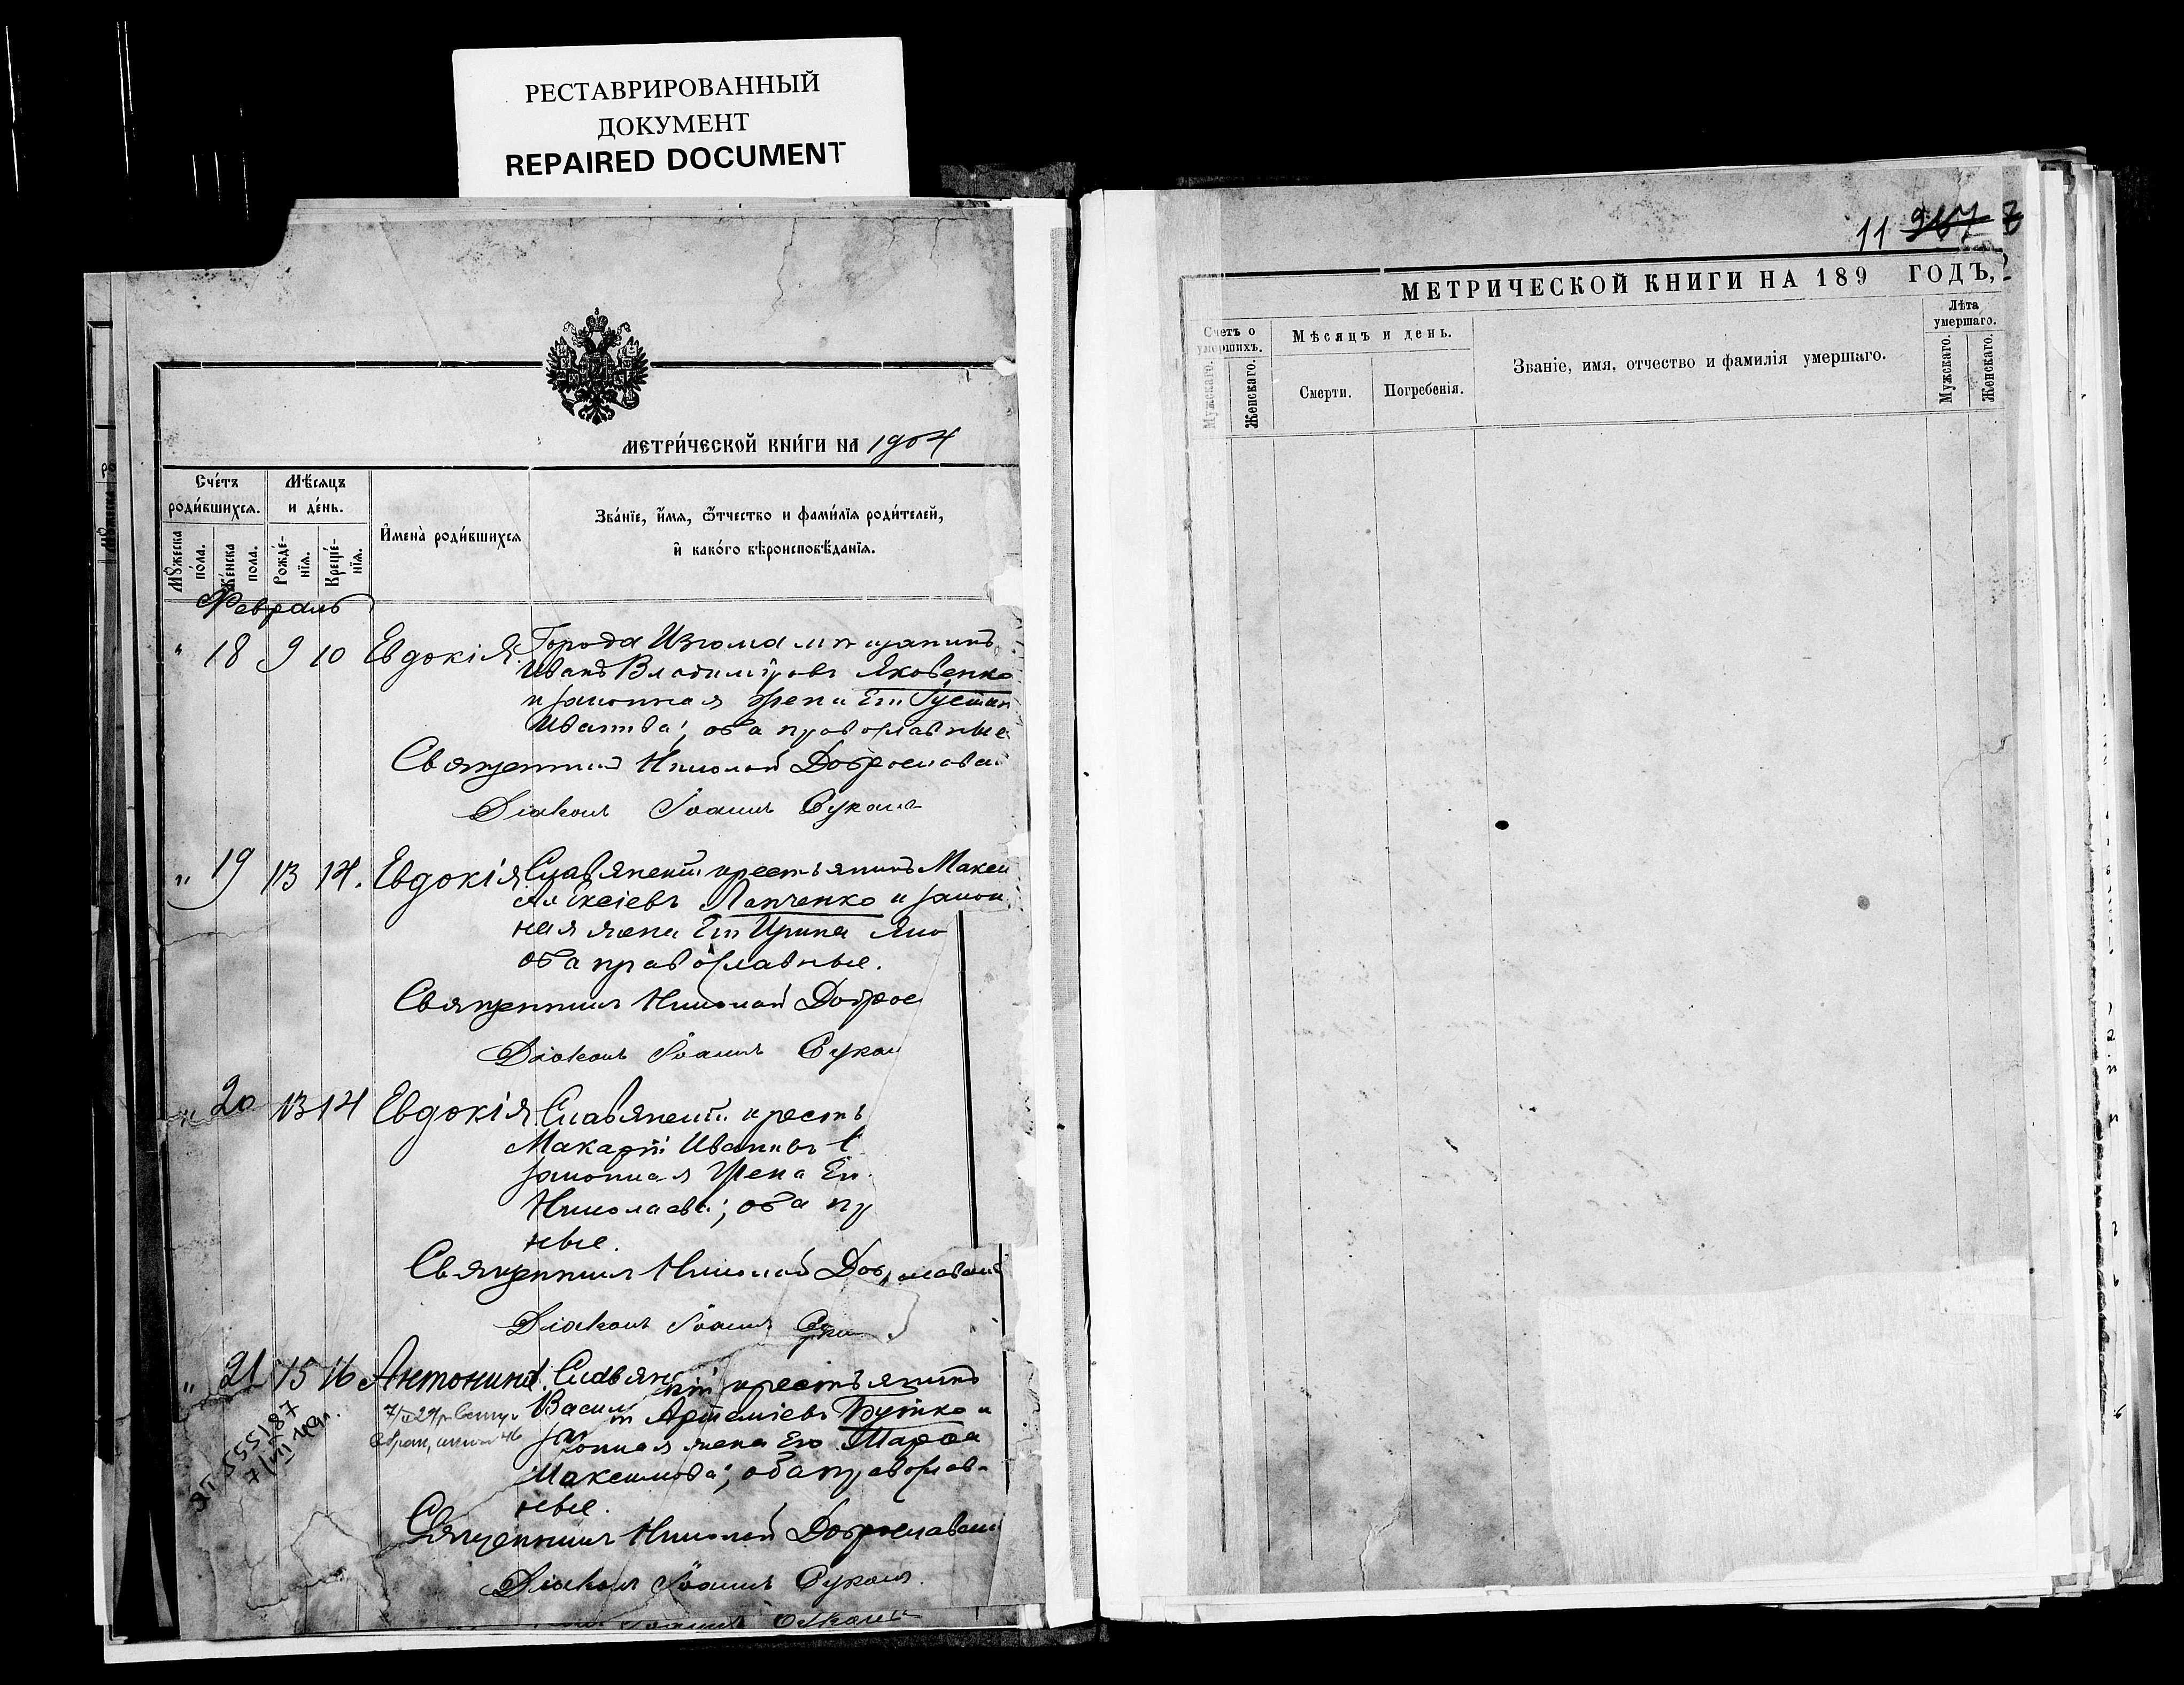 РЕСТАВРИРОВАННЫЙ
ДОКУМЕНТ
REPAIRED DOCUMENT
МЕТРИ́ЧЕСКОЙ КНИ́ГИ НА 1904
Сче́тъ
роди́вшихся.
Мѣ́сяцъ
и де́нь.
Мꙋ́жеска
по́ла.
Же́нска
пола.
Рожде́-
нїѧ.
Креще́-
нїѧ.
И҆мена̀ роди́вшихся
Зва́нїе, и҆́мѧ, ѻ҆́тчество и фами́лїѧ роди́телей,
и҆ како́го вѣроисповѣ́данїѧ.
Февраль
" 18 9 10 Евдокія Города Изюма мѣщанинъ
Иванъ Владиміровъ Яковенко
и законная жена Его Густин
Иванова; оба православные
Священник Николай Доброславск
Діаконъ Іоаннъ
" 19 13 14. Евдокія Славянскій крестьянинъ Макси
Алексіевъ Панченко и закон
ная жена Его Ирина Яко
оба православные.
Священникъ Николай Доброс
Діаконъ Іоаннъ
" 20 13 14 Евдокія Славянскій кресть
Макарій Ивановъ
законная жена Его
Николаева; оба пр
ные.
Священникъ Николай Доб славскій
Діаконъ Іоаннъ
" 21 15 16 Антонина. Славянскій крестьянинъ
Васил й Артеміевъ Бутко и
законная жена Его Марѳа
Максимова; оба православ-
ные.
ЯП 555187
Священникъ Николай Доброславскій
Діаконъ Іоаннъ
11 ~~967~~
МЕТРИЧЕСКОЙ КНИГИ НА 189 ГОДЪ,
Счетъ о
умершихъ.
Мужскаго.
Женскаго.
Мѣсяцъ и день.
Смерти.
Погребенія.
Званіе, имя, отчество и фамилія умершаго.
Лѣта
умершаго.
Мужскаго.
Женскаго.